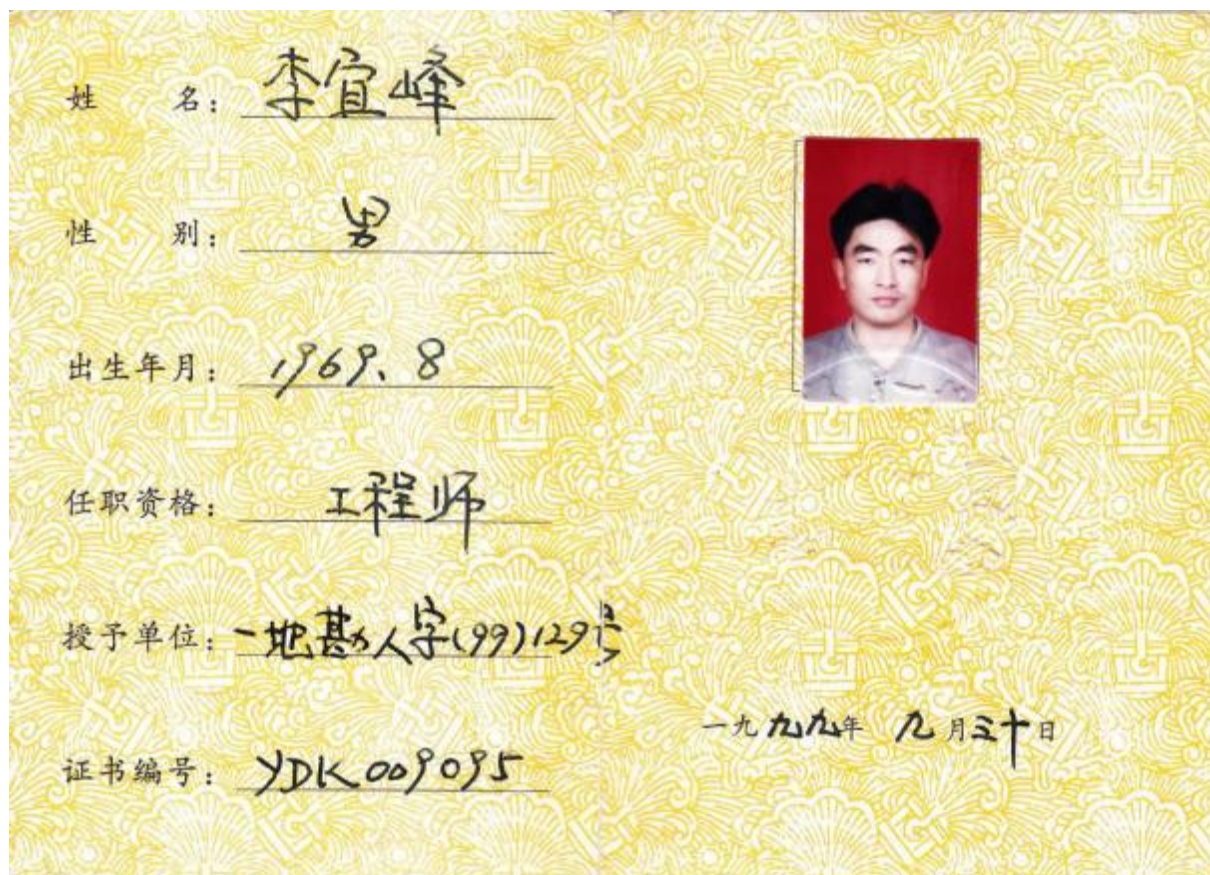 姓 名：李宜峰
性 别：男
出生年月：1969.8
任职资格：工程师
授予单位：一地勘人字(99)129号
证书编号：YDK009095
一九九九年 九月三十日